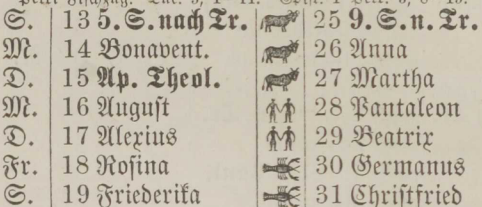 S. 13 5. S. nach Tr. 25 9. S. n. Tr.
M. 14 Bonavent. 26 Anna
D. 15 Ap. Theol. 27 Martha
M. 16 August 28 Pantaleon
D. 17 Alexius 29 Beatrix
Fr. 18 Rosina 30 Germanus
S. 19 Friederika 31 Christfried